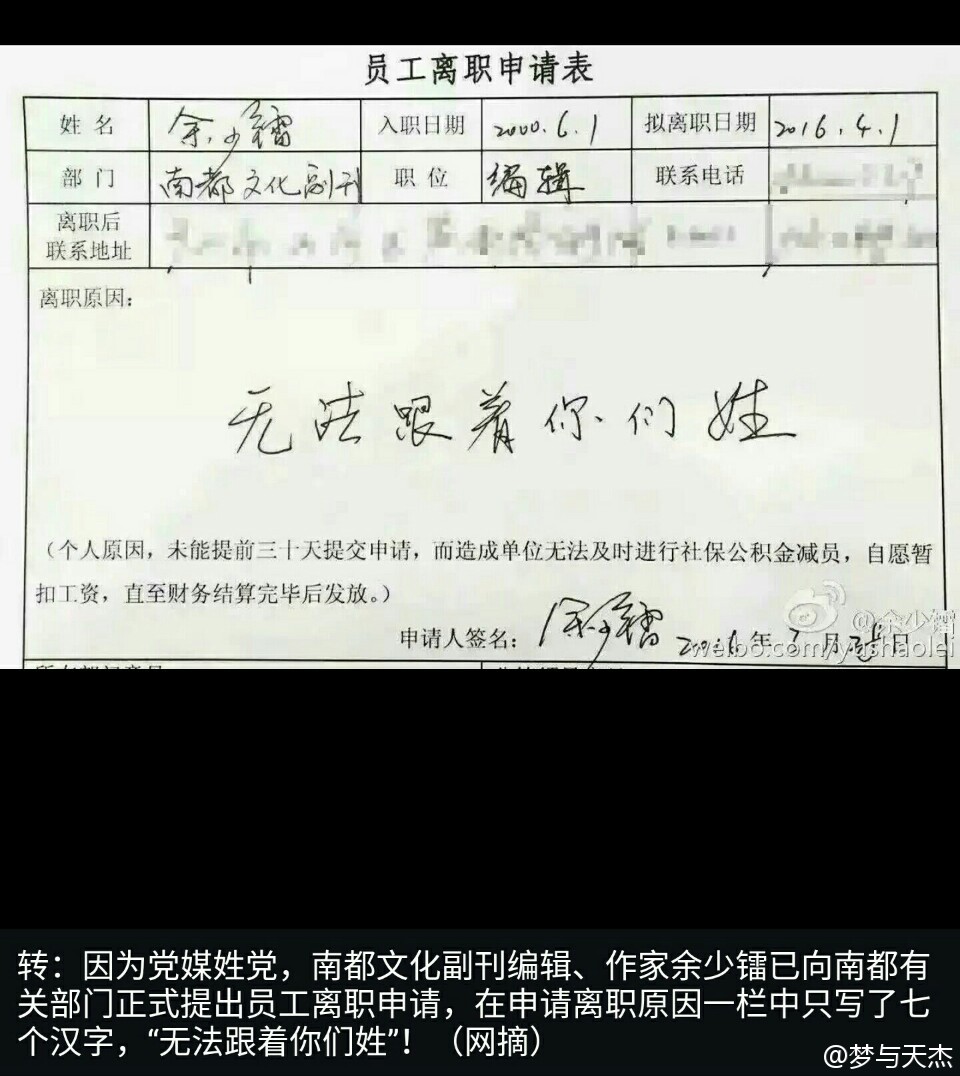 员工离职申请表
姓 名 余少镭 入职日期 2000.6.1 拟离职日期 2016.4.1
部 门 南都文化副刊 职 位 编辑 联系电话
离职后
联系地址
离职原因:
无法跟着你们姓
(个人原因,未能提前三十天提交申请,而造成单位无法及时进行社保公积金减员,自愿暂
扣工资,直至财务结算完毕后发放。)
申请人签名: 余少镭 2016年 月 日
@余少镭
weibo.com/yushaolei
转:因为党媒姓党,南都文化副刊编辑、作家余少镭已向南都有
关部门正式提出员工离职申请,在申请离职原因一栏中只写了七
个汉字,“无法跟着你们姓”!(网摘)
@梦与天杰